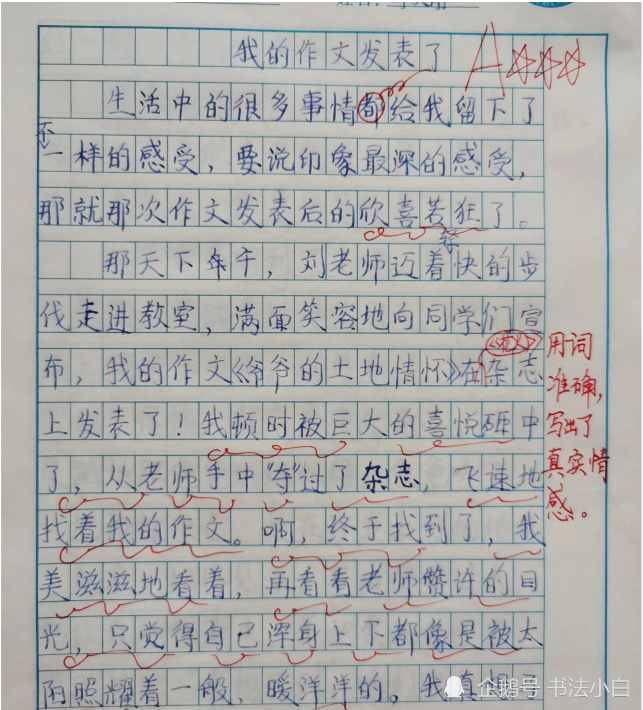 我的作文发表了
A
生活中的很多事情都给我留下了
不
一样的感受，要说印象最深的感受，
那就那次作文发表后的欣喜若狂了。
轻
那天下午，刘老师迈着快的步
伐走进教室，满面笑容地向同学们宣
布，我的作文《爷爷的土地情怀》在杂志
上发表了！我顿时被巨大的喜悦砸中
了，从老师手中“夺”过了杂志，飞速地
找着我的作文。啊，终于找到了，我
美滋滋地看着，再看看老师赞许的目
光，只觉得自己浑身上下都像是被太
阳照耀着一般，暖洋洋的。我真想
用词
准确，
写出了
真实情
感。
企鹅号 书法小白